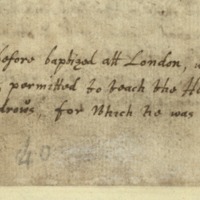 before baptized att London,
permitted to teach the
drows, for which he was
40